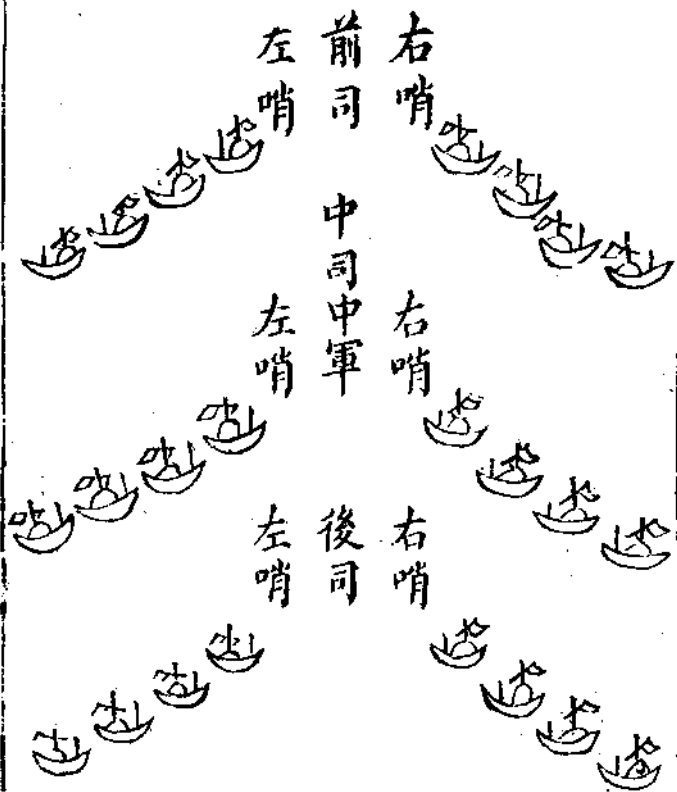 右哨
前司
左哨
中司中軍
右哨
左哨
右哨
後司
左哨